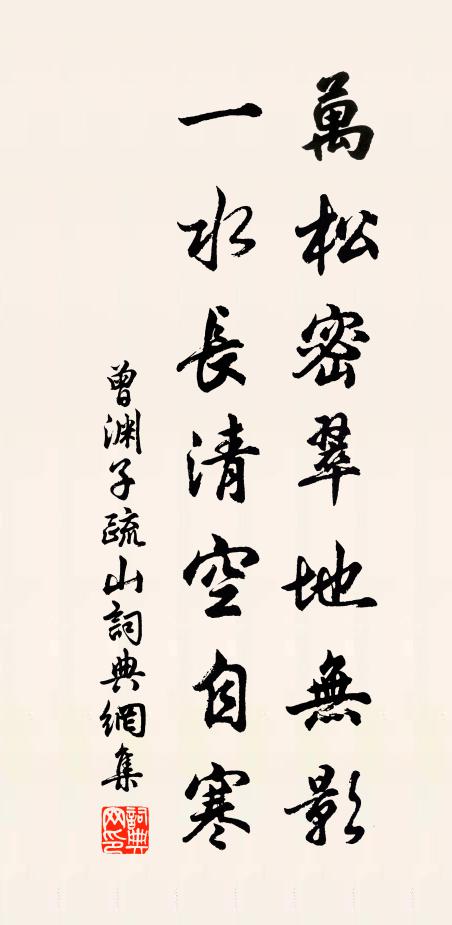 萬松密翠地無影
一水長清空自寒
曾渊子疏山詞典網集
詞典網印